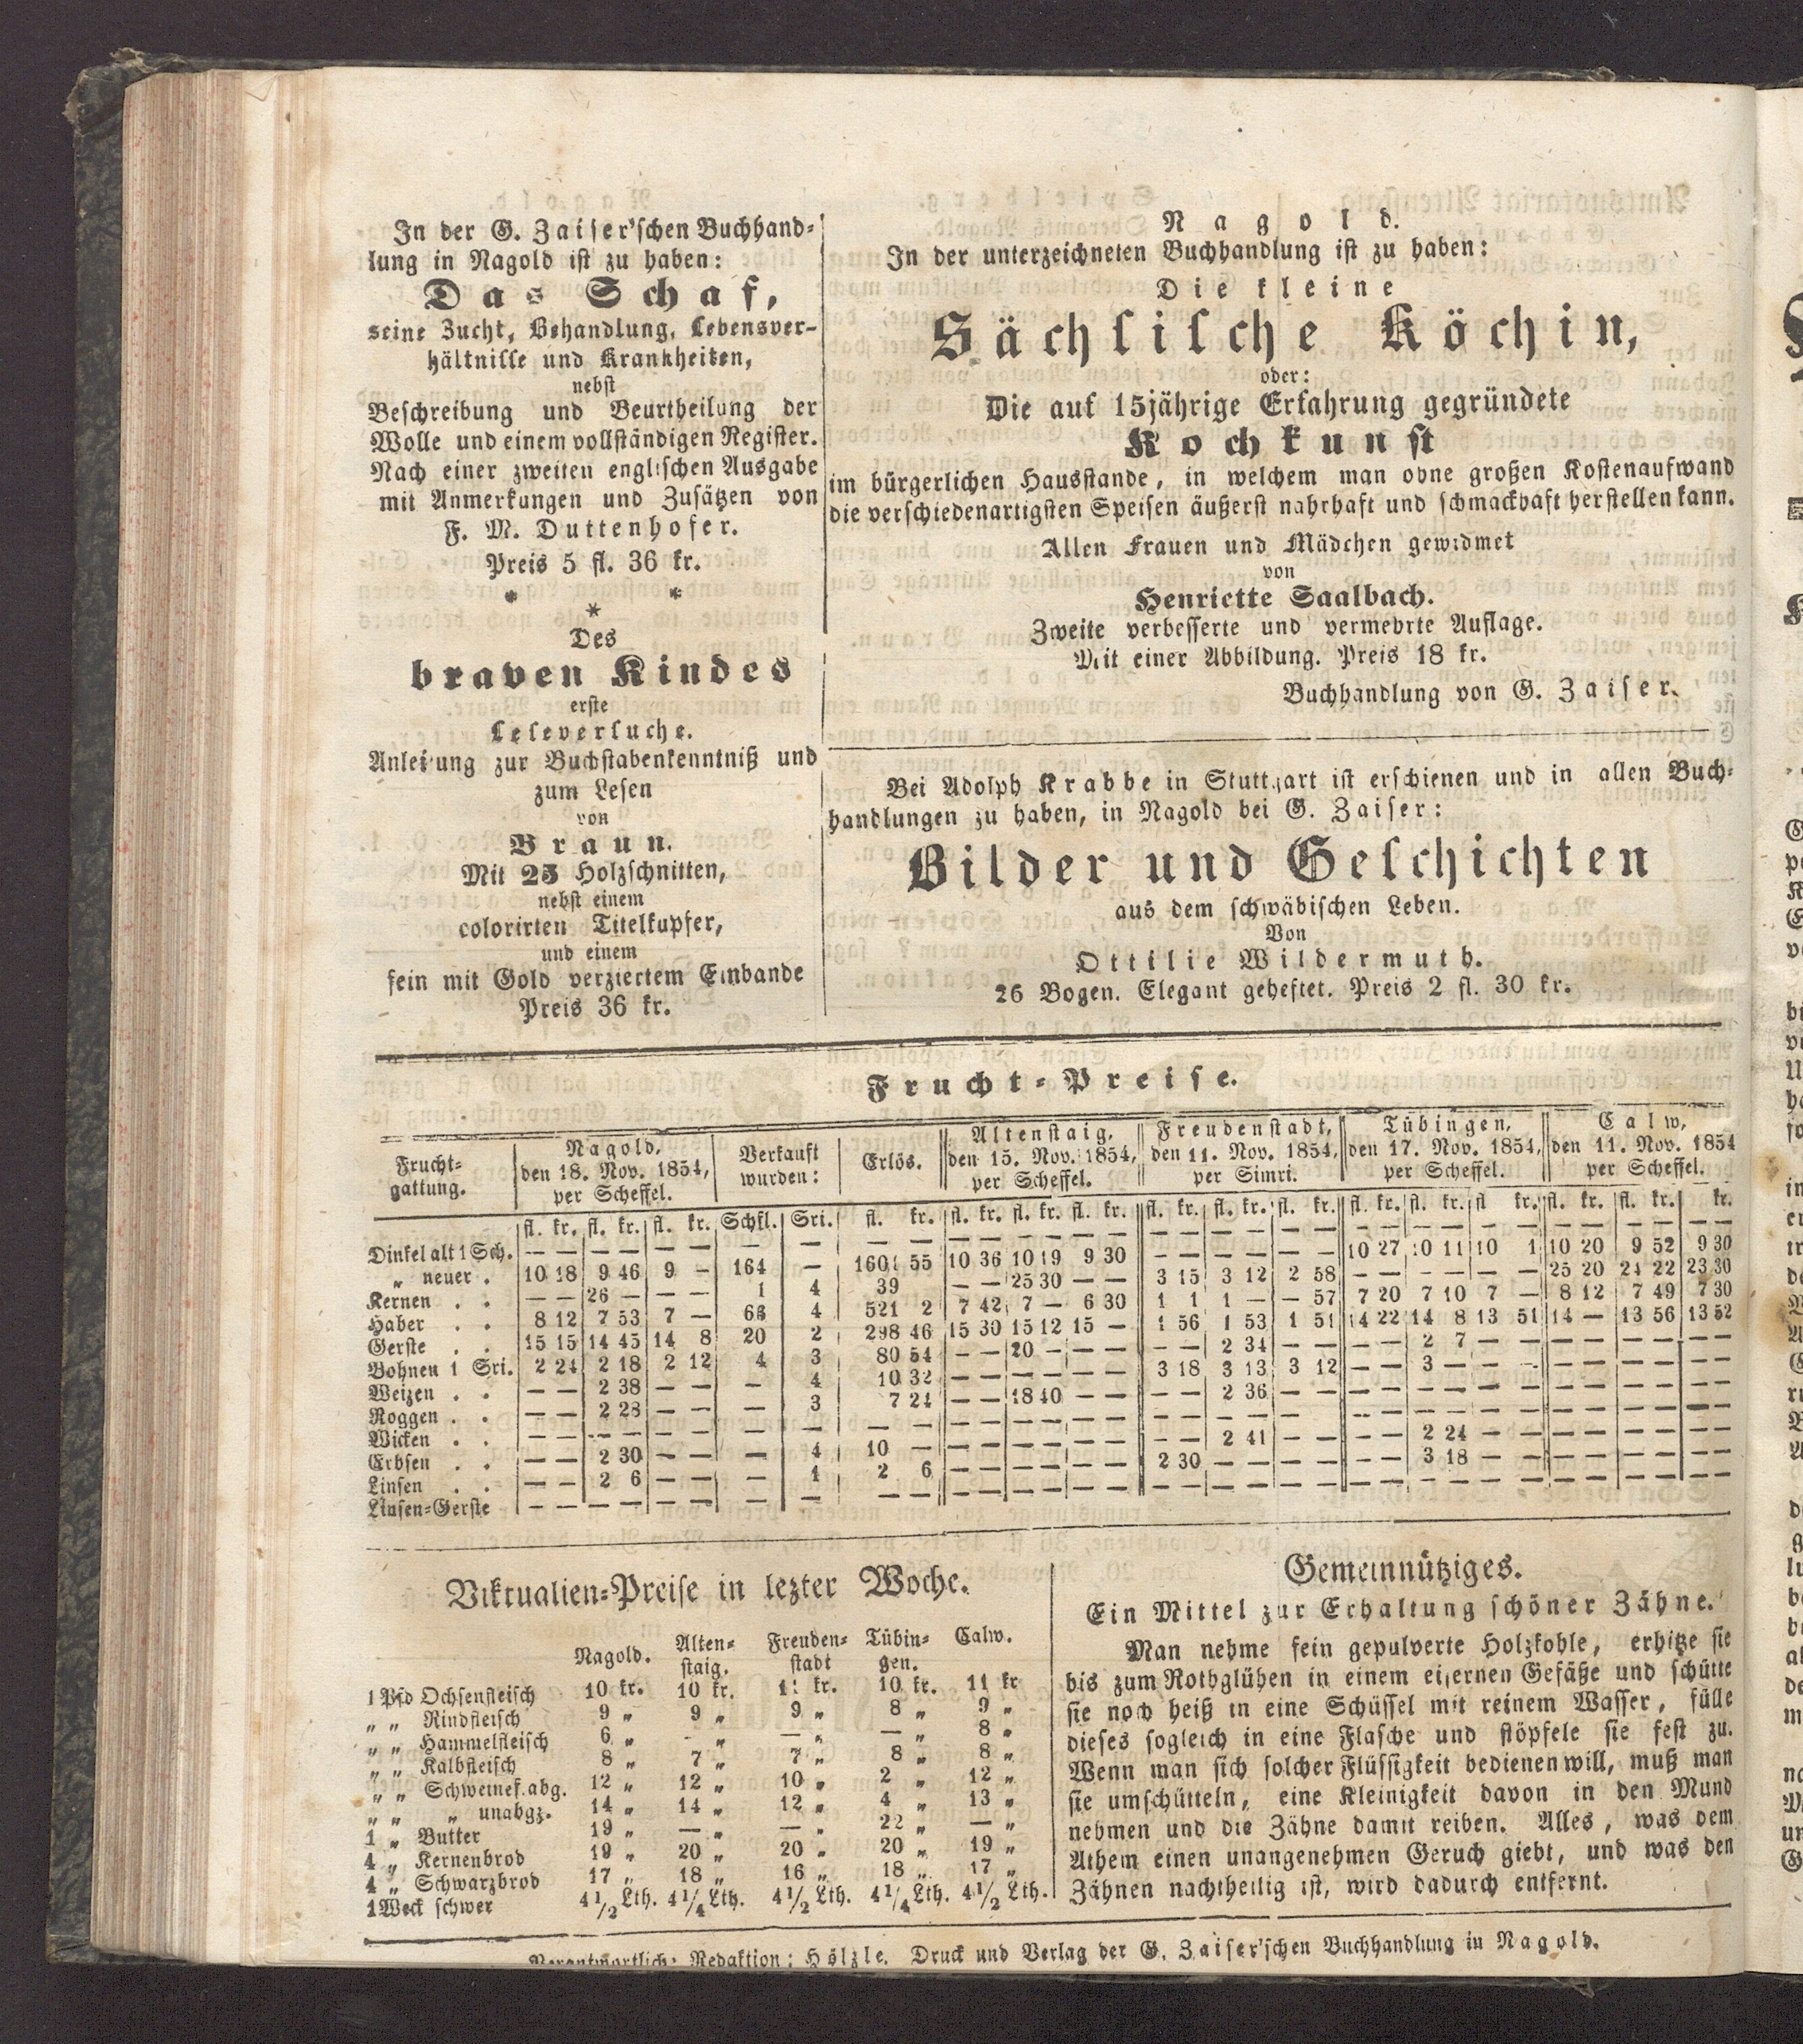 In der G. Zaiser'schen Buchhand-
lung in Nagold ist zu haben:
Das Schaf,
seine Zucht, Behandlung, Lebensver-
hältnisse und Krankheiten,
nebst
Beschreibung und Beurtheilung der
Wolle und einem vollständigen Register.
Nach einer zweiten englischen Ausgabe
mit Anmerkungen und Zusätzen von
F. M. Duttenhofer.
Preis 5 fl. 36 kr.
* * *
Des
braven Kindes
erste
Leseversuche.
Anleitung zur Buchstabenkenntniß und
zum Lesen
von
Braun.
Mit 23 Holzschnitten,
nebst einem
colorirten Titelkupfer,
und einem
fein mit Gold verziertem Einbande
Preis 36 kr.
Nagold.
In der unterzeichneten Buchhandlung ist zu haben:
Die kleine
Sächsische Köchin,
oder:
Die auf 15jährige Erfahrung gegründete
Kochkunst
im bürgerlichen Hausstande, in welchem man ohne großen Kostenaufwand
die verschiedenartigsten Speisen äußerst nahrhaft und schmackhaft herstellen kann.
Allen Frauen und Mädchen gewidmet
von
Henriette Saalbach.
Zweite verbesserte und vermehrte Auflage.
Mit einer Abbildung. Preis 18 kr.
Buchhandlung von G. Zaiser.
Bei Adolph Krabbe in Stuttgart ist erschienen und in allen Buch-
handlungen zu haben, in Nagold bei G. Zaiser:
Bilder und Geschichten
aus dem schwäbischen Leben.
Von
Ottilie Wildermuth.
26 Bogen. Elegant geheftet. Preis 2 fl. 30 kr.
Frucht-Preise.
Frucht-gattung. | Nagold, den 18. Nov. 1854, per Scheffel. | Verkauft wurden: | Erlös. | Altenstaig, den 15. Nov. 1854, per Scheffel. | Freudenstadt, den 11. Nov. 1854, per Simri. | Tübingen, den 17. Nov. 1854, per Scheffel. | Calw, den 11. Nov. 1854 per Scheffel.
fl. kr. | fl. kr. | fl. kr. | Schfl. | Sri. | fl. kr. | fl. kr. | fl. kr. | fl. kr. | fl. kr. | fl. kr. | fl. kr. | fl. kr. | fl. kr. | fl kr. | fl. kr. | fl. kr. | kr.
Dinkel alt 1 Sch. — — | — — | — — | — | — | — — | — — | — — | — — | — — | — — | — — | — — | — — | — — | — — | — — | — —
„ neuer . 10 18 | 9 46 | 9 — | 164 | — | 1601 55 | 10 36 | 10 19 | 9 30 | — — | — — | — — | 10 27 | 10 11 | 10 1 | 10 20 | 9 52 | 9 30
Kernen . . — — | 26 — | — — | 1 | 4 | 39 | — — | 25 30 | — — | 3 15 | 3 12 | 2 58 | — — | — — | — — | 25 20 | 24 22 | 23 30
Haber . . 8 12 | 7 53 | 7 — | 66 | 4 | 521 2 | 7 42 | 7 — | 6 30 | 1 1 | 1 — | — 57 | 7 20 | 7 10 | 7 — | 8 12 | 7 49 | 7 30
Gerste . . 15 15 | 14 45 | 14 8 | 20 | 2 | 298 46 | 15 30 | 15 12 | 15 — | 1 56 | 1 53 | 1 51 | 14 22 | 14 8 | 13 51 | 14 — | 13 56 | 13 52
Bohnen 1 Sri. 2 24 | 2 18 | 2 12 | 4 | 3 | 80 54 | — — | 20 — | — — | — — | 2 34 | — — | — — | 2 7 | — — | — — | — — | — —
Weizen . . — — | 2 38 | — — | — | 4 | 10 32 | — — | — — | — — | 3 18 | 3 13 | 3 12 | — — | 3 — | — — | — — | — — | — —
Roggen . . — — | 2 28 | — — | — | 3 | 7 24 | — — | 18 40 | — — | — — | 2 36 | — — | — — | — — | — — | — — | — — | — —
Wicken . . — — | — — | — — | — | — | — — | — — | — — | — — | — — | — — | — — | — — | — — | — — | — — | — — | — —
Erbsen . . — — | 2 30 | — — | — | 4 | 10 — | — — | — — | — — | — — | 2 41 | — — | — — | 2 24 | — — | — — | — — | — —
Linsen . . — — | 2 6 | — — | — | 1 | 2 6 | — — | — — | — — | 2 30 | — — | — — | — — | 3 18 | — — | — — | — — | — —
Linsen-Gerste — — | — — | — — | — | — | — — | — — | — — | — — | — — | — — | — — | — — | — — | — — | — — | — — | — —
Viktualien-Preise in lezter Woche.
Nagold. Alten-staig. Freuden-stadt Tübin-gen. Calw.
1 Pfd Ochsenfleisch 10 kr. 10 kr. 11 kr. 10 kr. 11 kr
„ „ Rindfleisch 9 „ 9 „ 9 „ 8 „ 9 „
„ „ Hammelfleisch 6 „ - „ — „ — „ 8 „
„ „ Kalbfleisch 8 „ 7 „ 7 „ 8 „ 8 „
„ „ Schweinef. abg. 12 „ 12 „ 10 „ 2 „ 12 „
„ „ „ unabgz. 14 „ 14 „ 12 „ 4 „ 13 „
1 „ Butter 19 „ — „ — „ 22 „ — „
4 „ Kernenbrod 19 „ 20 „ 20 „ 20 „ 19 „
4 „ Schwarzbrod 17 „ 18 „ 16 „ 18 „ 17 „
1 Weck schwer 4 1/2 Lth. 4 1/4 Lth. 4 1/2 Lth. 4 1/4 Lth. 4 1/2 Lth.
Gemeinnütziges.
Ein Mittel zur Erhaltung schöner Zähne.
Man nehme fein gepulverte Holzkohle, erhitze sie
bis zum Rothglühen in einem eisernen Gefäße und schütte
sie noch heiß in eine Schüssel mit reinem Wasser, fülle
dieses sogleich in eine Flasche und stöpfele sie fest zu.
Wenn man sich solcher Flüssigkeit bedienen will, muß man
sie umschütteln, eine Kleinigkeit davon in den Mund
nehmen und die Zähne damit reiben. Alles, was dem
Athem einen unangenehmen Geruch giebt, und was den
Zähnen nachtheilig ist, wird dadurch entfernt.
Verantwortlich: Redaktion: Hölzle. Druck und Verlag der G. Zaiser'schen Buchhandlung in Nagold.